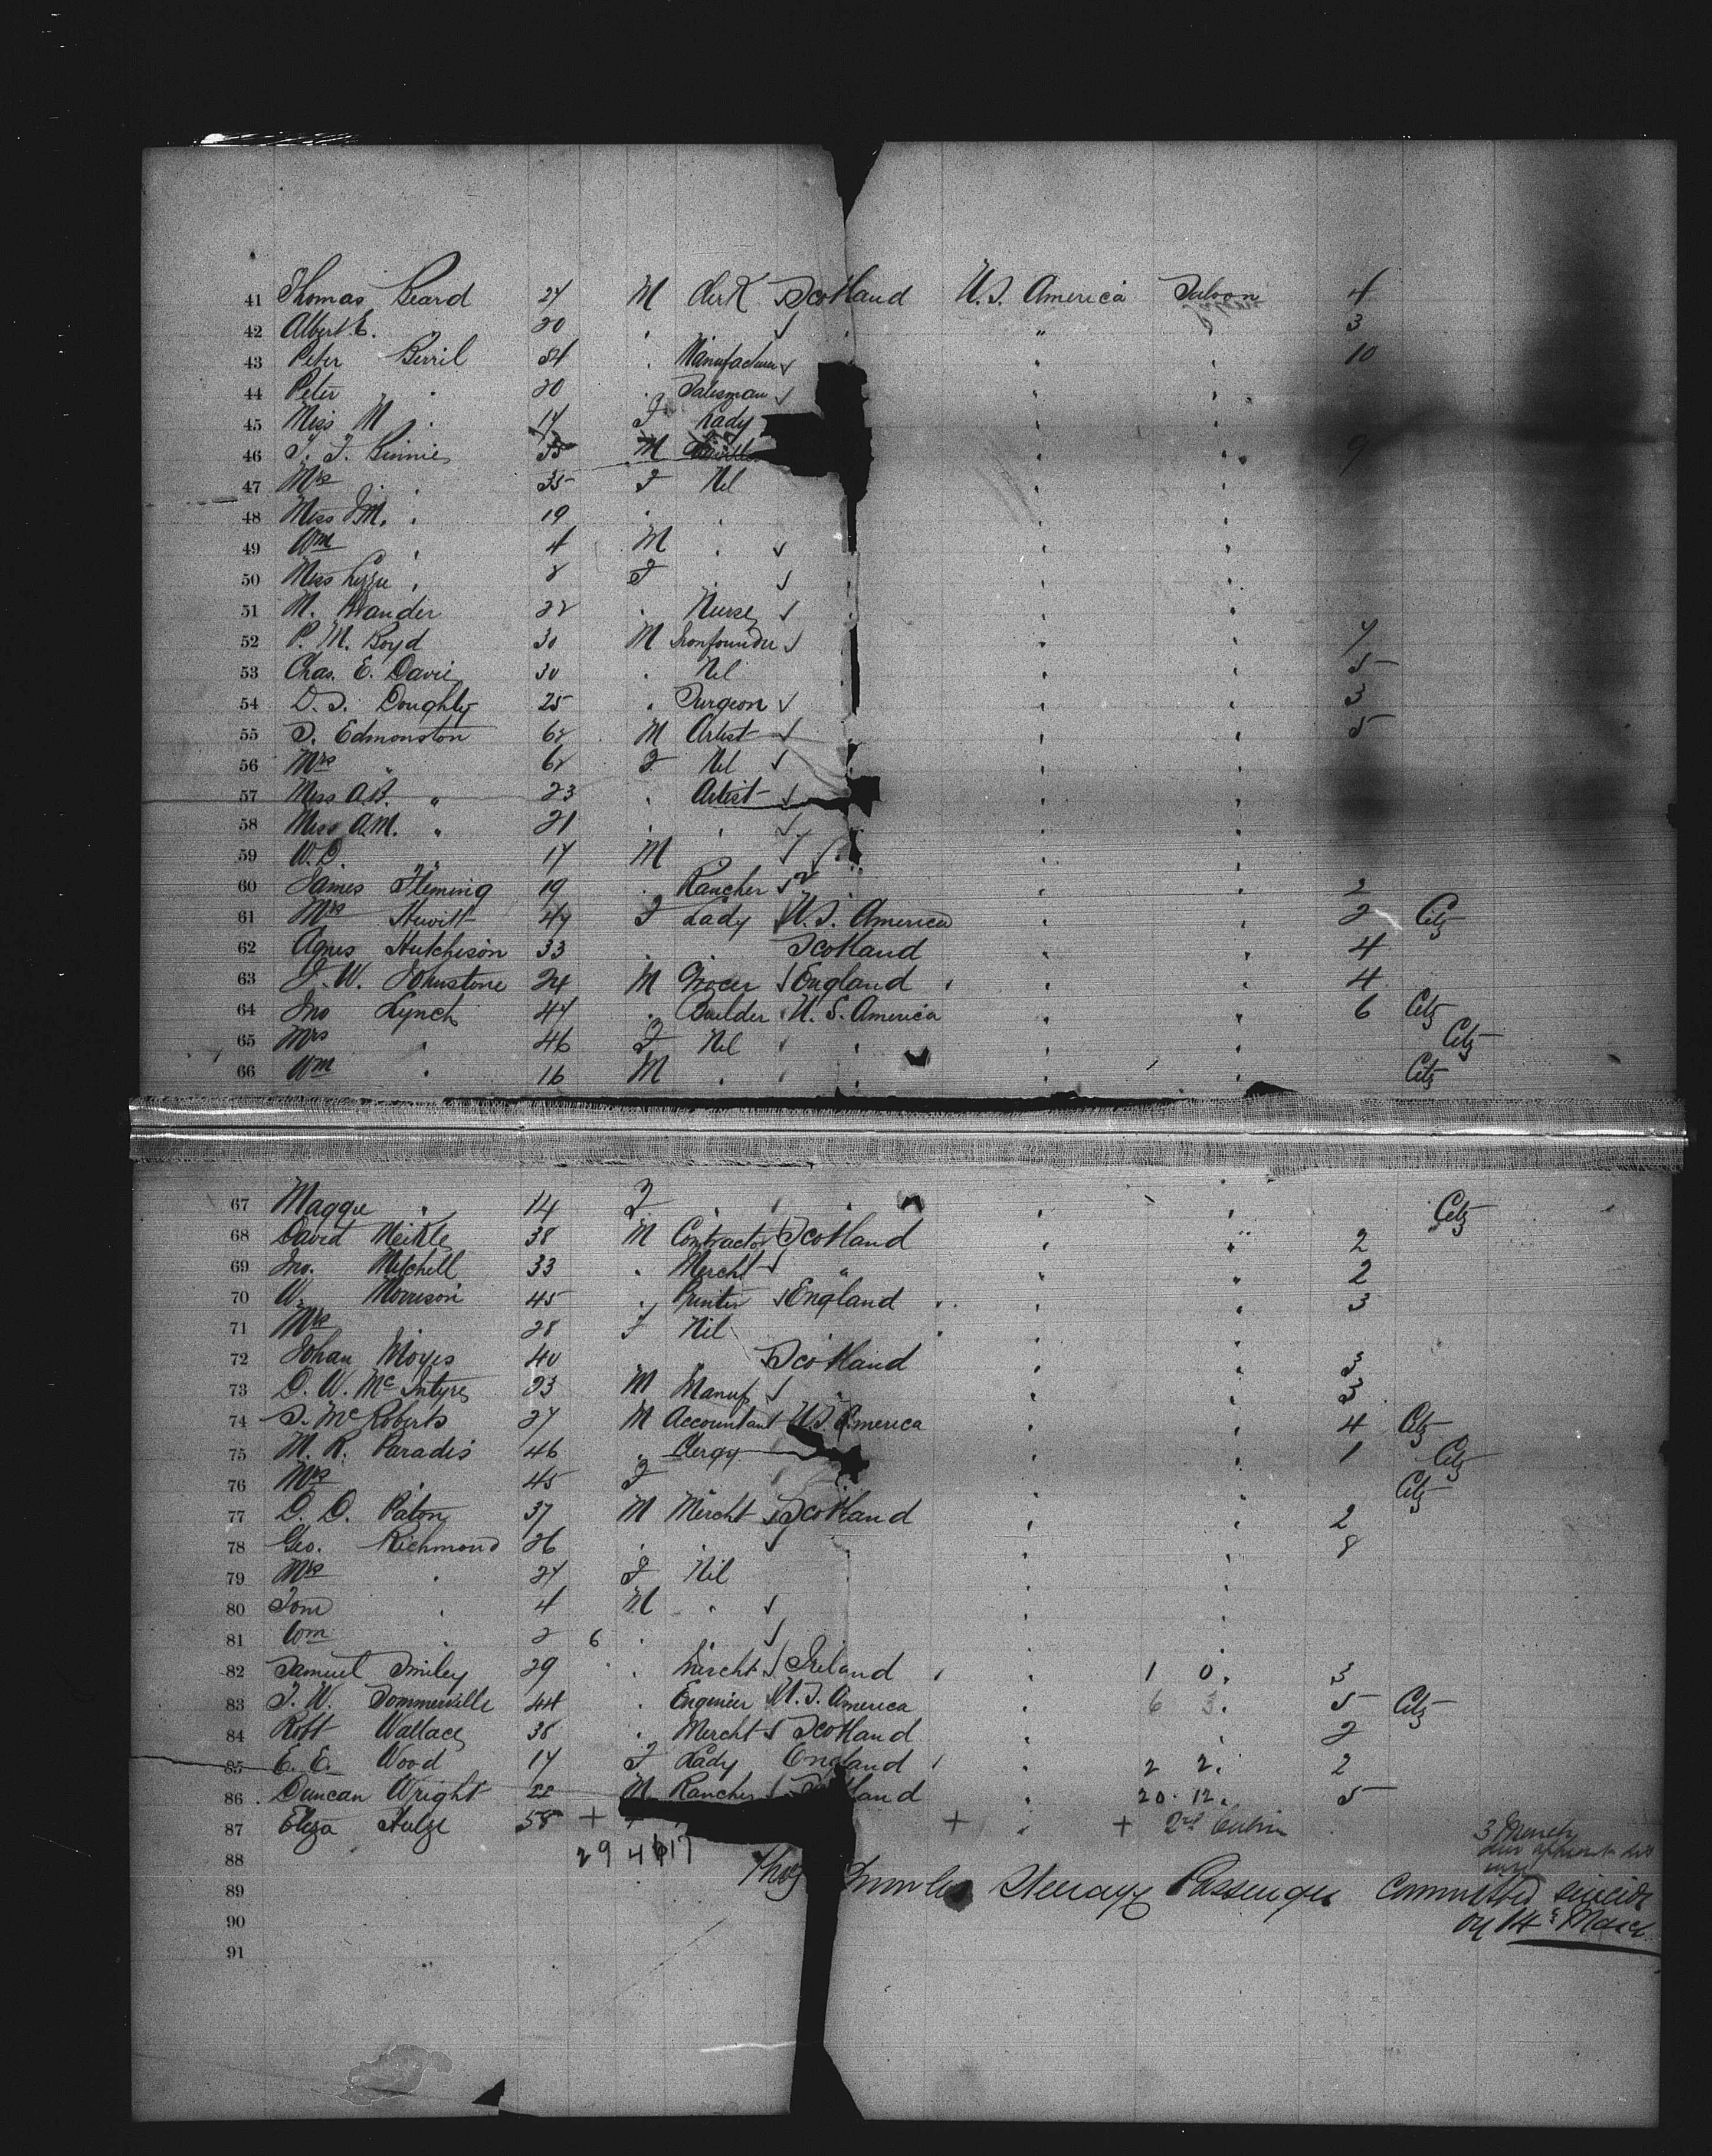 41 Thomas Beard 24 M Clerk Scotland U.S. America Saloon 4
42 Albert E. " 20 " " " 3
43 Peter Birril 54 " Manufacturer " " 10
44 Peter " 20 " Salesman " "
45 Miss M " 17 F Lady " "
46 T. F. Binnie 35 M " " 9
47 Mrs " 35 F Nil " "
48 Miss J.M. " 19 " " " "
49 Wm " 4 M " " "
50 Miss Lizzie " 2 F " " "
51 M. 22 " Nurse " "
52 P. M. Boyd 30 M Ironfounder " " 7
53 Chas. E. Davie 30 " Nil " " 5
54 D. S. Doughty 25 " Surgeon " " 3
55 S. Edmonston 62 M Artist " " 5
56 Mrs " 62 F Nil " " "
57 Miss A.B. " 23 " Artist " "
58 Miss A.M. " 21 " " " "
59 W.D. " 17 M " " "
60 James Fleming 19 " Rancher " " " 2
61 Mrs Hewitt 47 F Lady U.S. America " " 2 Citz
62 Agnes Hutchison 33 " Scotland " " 4
63 J. W. Johnstone 24 M Grocer England " " 4
64 Jno Lynch 47 " Builder U.S. America " " 6 Citz
65 Mrs " 46 F Nil " " " Citz
66 Wm " 16 M " " " " Citz
67 Maggie " 14 F " " " " Citz
68 David Meikle 38 M Contractor Scotland " " 2
69 Jno. Mitchell 33 " Mercht " " " 2
70 W. Morrison 45 " Printer England " " 3
71 Mrs " 28 F Nil " " "
72 Johan Moyes 40 " " Scotland " " 3
73 D. W. McIntyre 23 M Manuf " " " 3
74 S. McRoberts 27 M Accountant U.S. America " " 4 Citz
75 M. R. Paradis 46 " Clergy " " 1 Citz
76 Mrs " 45 F " " " Citz
77 D. D. Paton 37 M Mercht Scotland " " 2
78 Geo. Richmond 26 " " " " " 8
79 Mrs " 27 F Nil " "
80 Tom " 4 M " " "
81 Wm " 2 6 " " "
82 Samuel Smiley 29 " Mercht Ireland " 1 0 " 3
83 T. W. Sommerville 44 " Engineer U.S. America " 6 3 " 5 Citz
84 Robt Wallace 38 " Mercht Scotland " " 2
85 E. E. Wood 17 F Lady England " 2 2 " 2
86 Duncan Wright 22 M Rancher Scotland " 20 12 " 5
87 Eliza 58 + F + " + 2nd Cabin 3 March
88 29 4 6 17
89 Thos Steerage Passenger committed suicide
90 on 14th March
91